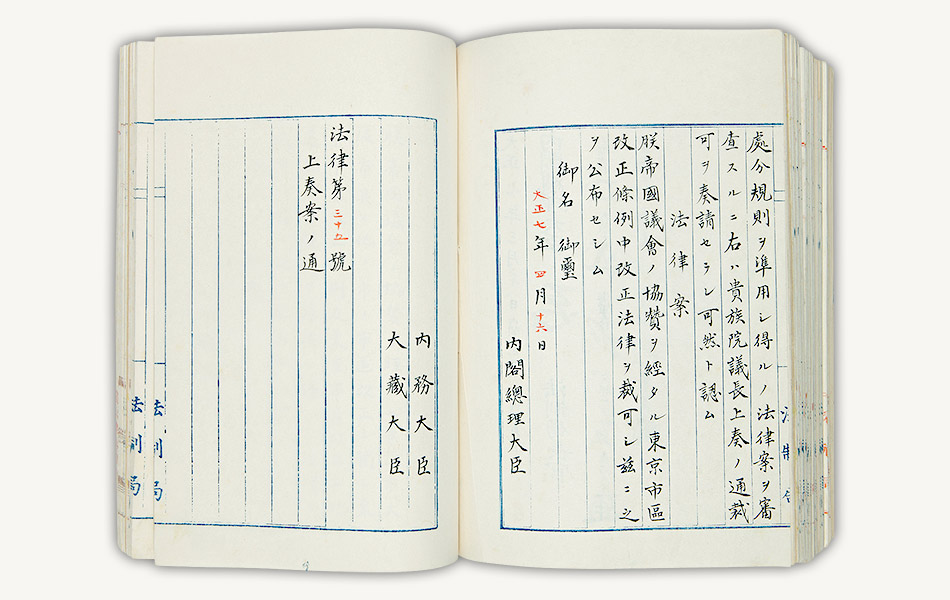 處分規則ヲ準用シ得ルノ法律案ヲ審
査スルニ右ハ貴族院議長上奏ノ通裁
可ヲ奏請セラレ可然ト認ム
法律案
朕帝國議會ノ協贊ヲ經タル東京市區
改正條例中改正法律ヲ裁可シ茲ニ之
ヲ公布セシム
御名 御璽
大正七年四月十六日
內閣總理大臣
內務大臣
大藏大臣
法律第三十五號
上奏案ノ通
法制局
法制局